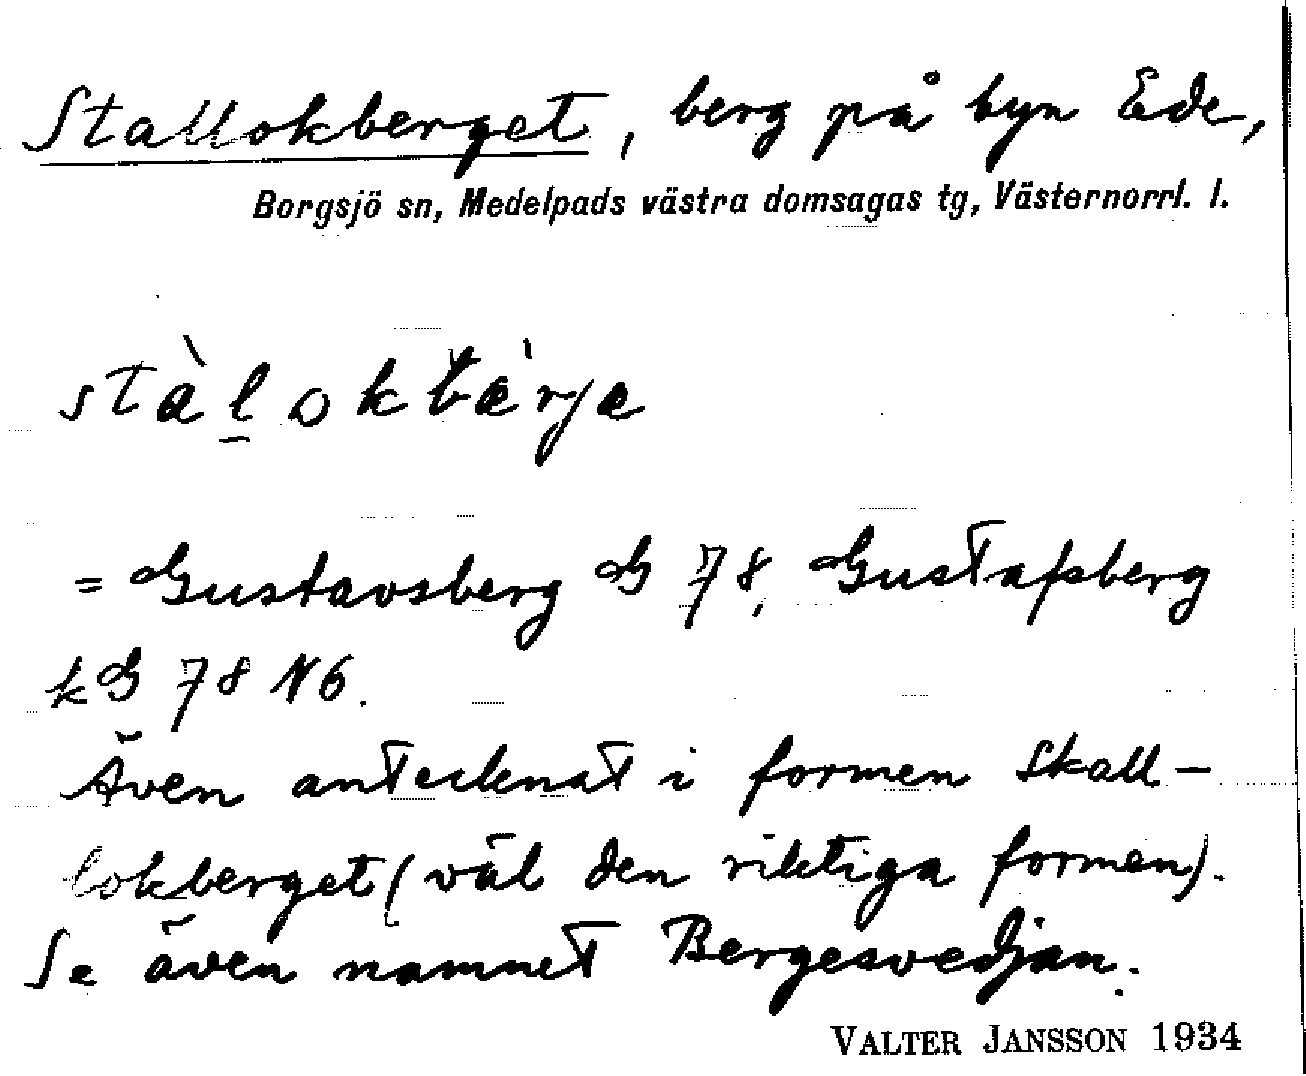 Stallokberget, berg på byn Ede,
Borgsjö sn, Medelpads västra domsagas tg, Västernorrl. l.
stàl̲okbæ̀rjæ
= Gustavsberg G 78, Gustafsberg
kG 78 N6.
Även antecknat i formen Skall-
lokberget (väl den riktiga formen).
Se även namnet Bergesvedjan.
VALTER JANSSON 1934